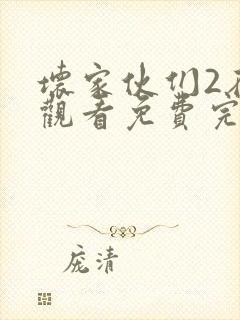 壞家伙们2在
觀看免費完
庞清